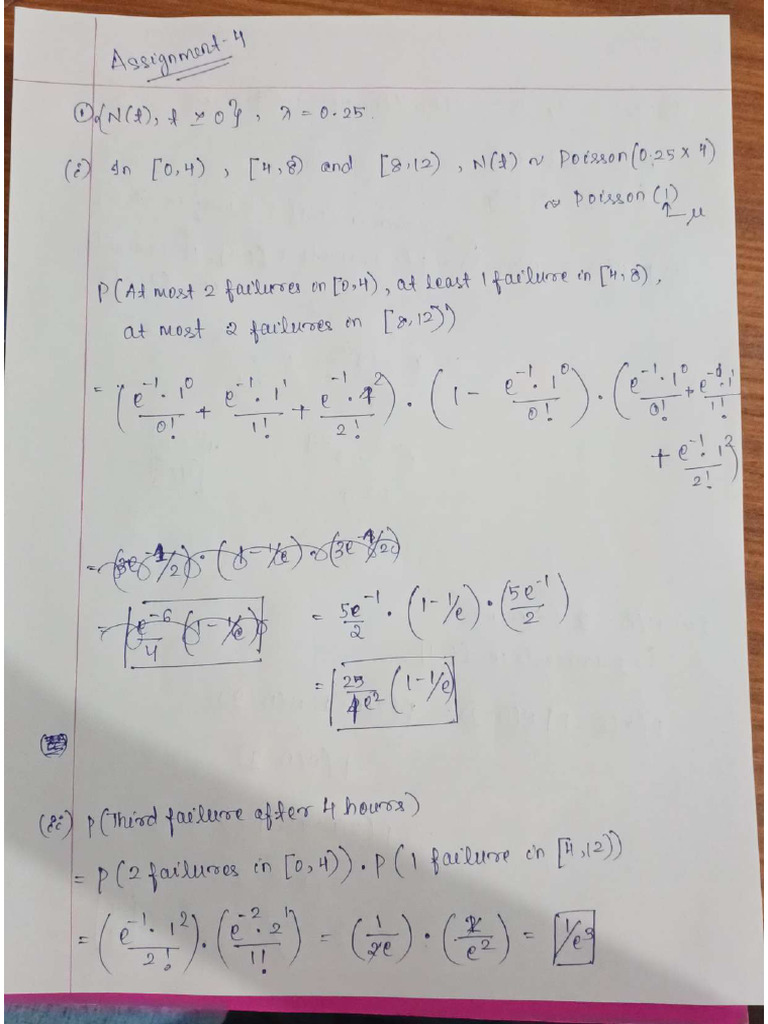 Assignment-4
① {N(t), t ≥ 0}, λ = 0.25.
(i) In [0,4), [4,8) and [8,12), N(t) ~ Poisson(0.25 × 4)
~ Poisson(1)
↑ μ
P(At most 2 failures in [0,4), at least 1 failure in [4,8),
at most 2 failures in [8,12))
= (e^-1 · 1^0 / 0! + e^-1 · 1^1 / 1! + e^-1 · 1^2 / 2!) · (1 - e^-1 · 1^0 / 0!) · (e^-1 · 1^0 / 0! + e^-1 · 1^1 / 1!
+ e^-1 · 1^2 / 2!)
= 5e^-1 / 2 · (1 - 1/e) · (5e^-1 / 2)
= 25 / 4e^2 (1 - 1/e)
(ii) P(Third failure after 4 hours)
= P(2 failures in [0,4)) · P(1 failure in [4,12))
= (e^-1 · 1^2 / 2!) · (e^-2 · 2^1 / 1!) = (1 / 2e) · (2 / e^2) = 1/e^3